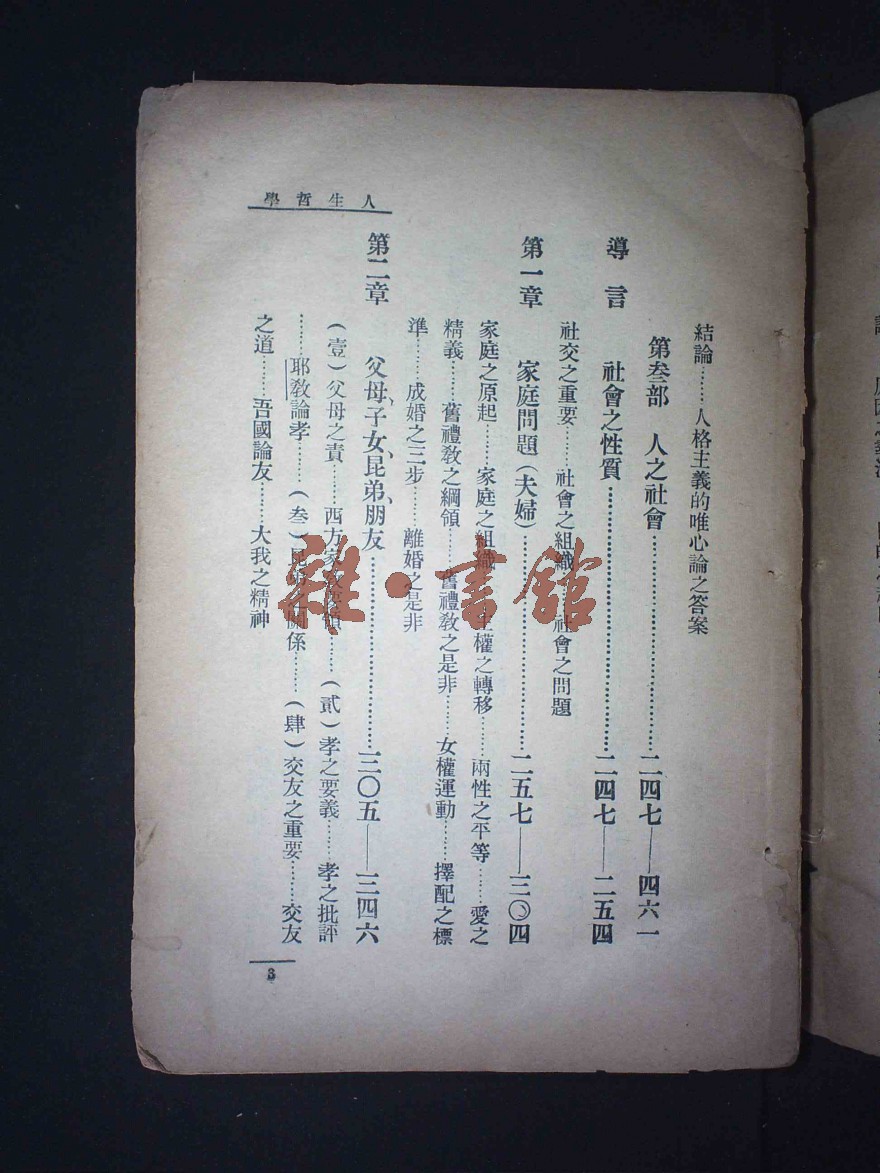 人生哲學
結論……人格主義的唯心論之答案
第叁部　人之社會……二四七——四六一
導言　社會之性質……二四七——二五四
社交之重要……社會之組織……社會之問題
第一章　家庭問題（夫婦）……二五七——三〇四
家庭之原起……家庭之組織……主權之轉移……兩性之平等……愛之
精義……舊禮教之綱領……舊禮教之是非……女權運動……擇配之標
準……成婚之三步……離婚之是非
第二章　父母、子女、昆弟、朋友……三〇五——三四六
（壹）父母之責……西方家教要領……（貳）孝之要義……孝之批評
……耶教論孝……（叁）昆弟之關係……（肆）交友之重要……交友
之道……吾國論友……大我之精神
3
雜·書館